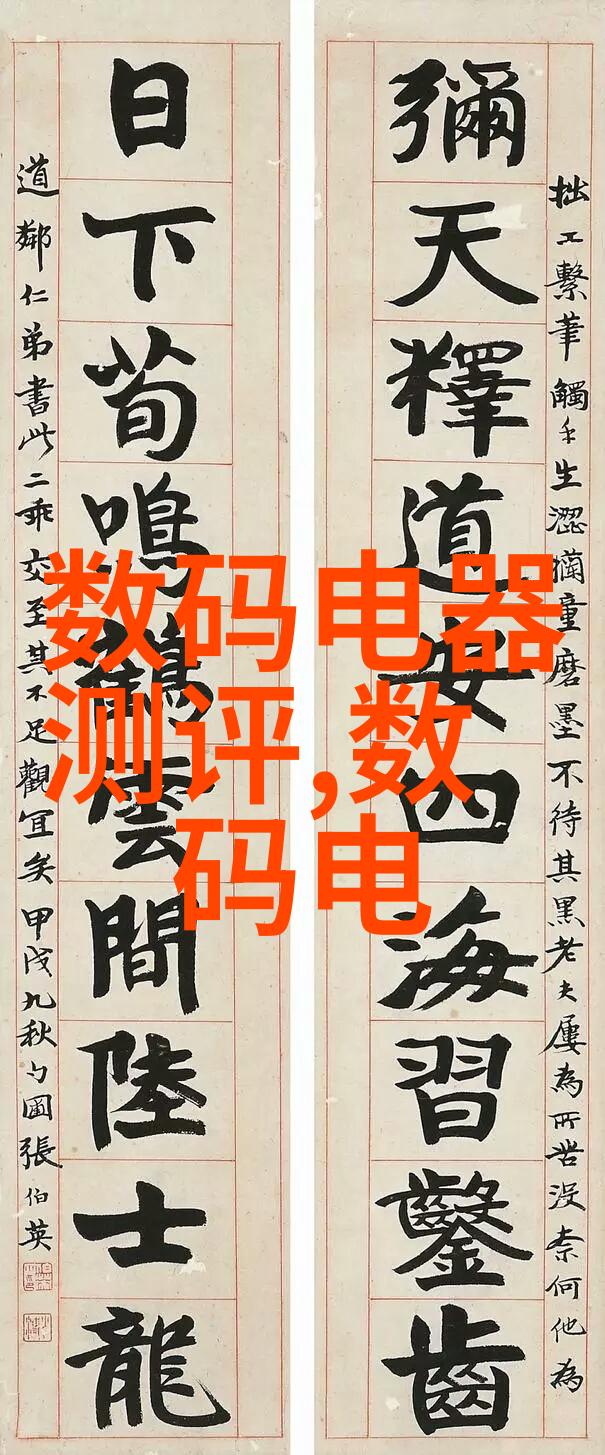 彌天釋道安四海習鑿齒
日下荀鳴鶴雲間陸士龍
拙工繫筆觸手生澀獨童磨墨不待其黑老夫屢為所苦沒柰何他為
道鄰仁弟書此二乖交至其不足觀宜矣甲戌九秋勺圃張伯英
数码电器
测评,数
码电